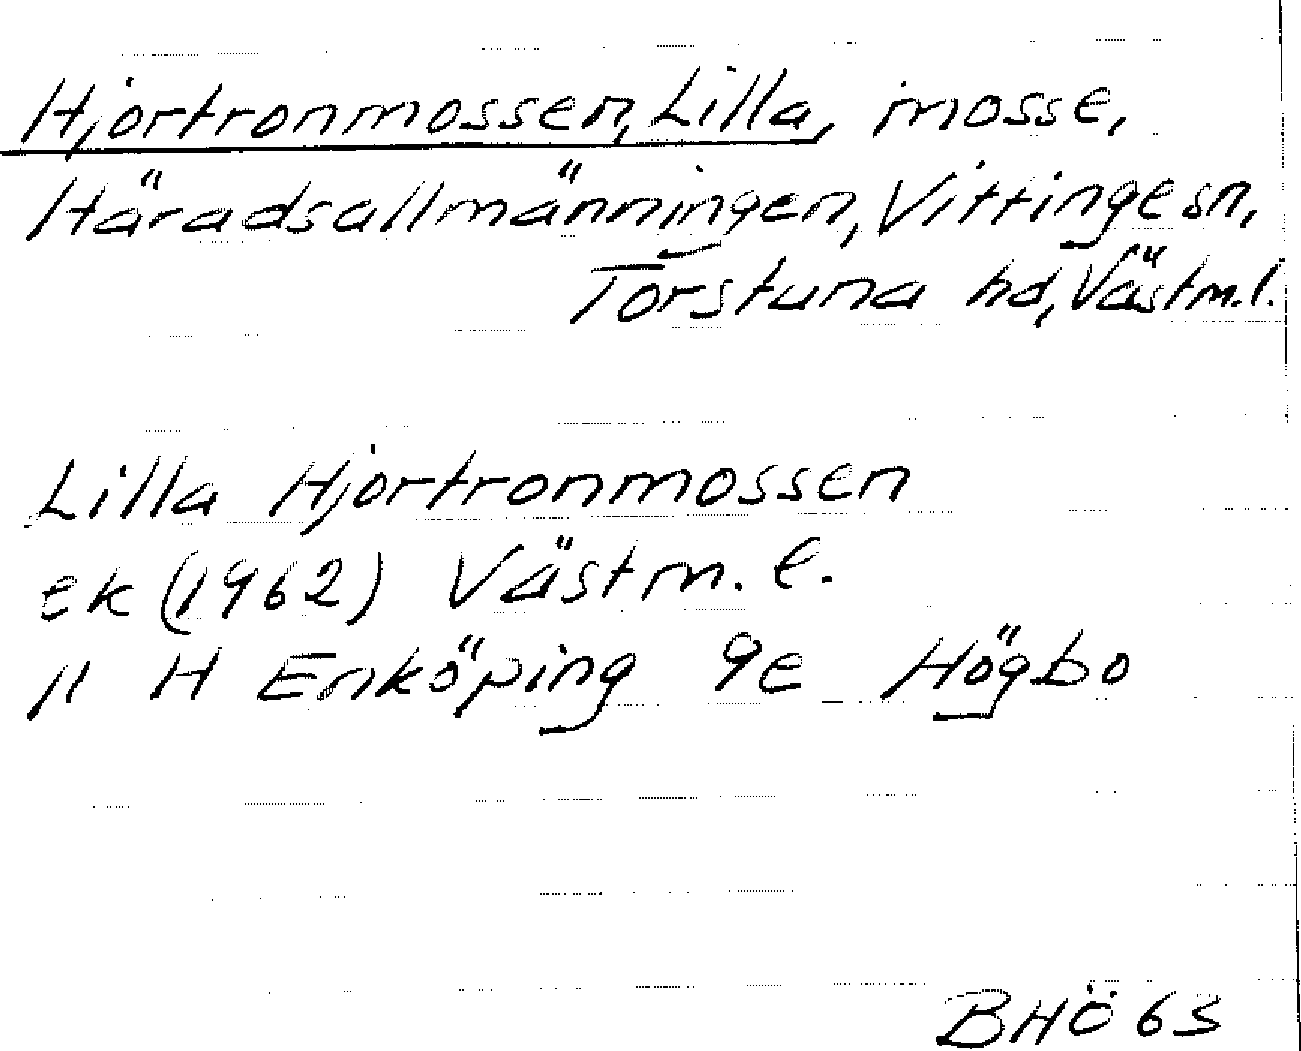 Hjortronmossen, Lilla, mosse,
Häradsallmänningen, Vittinge sn,
Torstuna hd, Västm.l.
Lilla Hjortronmossen
ek (1962) Västm. l.
11 H Enköping 9e Högbo
BHÖ 63